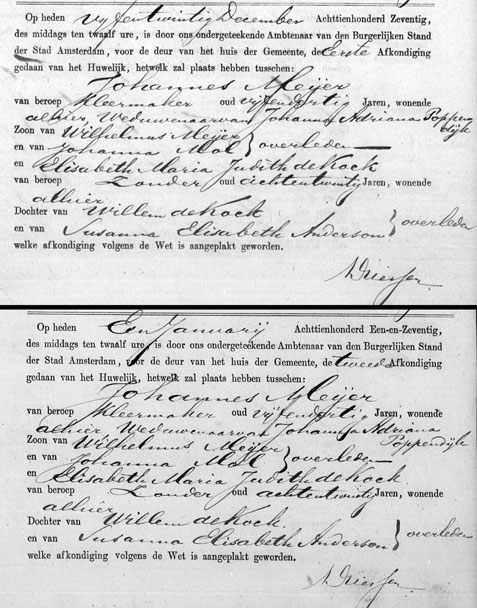 Op heden vijfentwintig December Achttienhonderd Zeventig,
des middags ten twaalf ure, is door ons ondergeteekende Ambtenaar van den Burgerlijken Stand
der Stad Amsterdam, voor de deur van het huis der Gemeente, de Eerste Afkondiging
gedaan van het Huwelijk, hetwelk zal plaats hebben tusschen:
Johannes Meijer
van beroep Kleermaker oud vijfendertig Jaren, wonende
alhier, Weduwenaar van Johanna Adriana Poppendijk
Zoon van Wilhelmus Meijer
en van Johanna Mol } overleden
en Elisabeth Maria Judith de Kock
van beroep Zonder oud achtentwintig Jaren, wonende
alhier
Dochter van Willem de Kock
en van Susanna Elisabeth Anderson } overleden
welke afkondiging volgens de Wet is aangeplakt geworden.
Op heden Een Januarij Achttienhonderd Een-en-Zeventig,
des middags ten twaalf ure, is door ons ondergeteekende Ambtenaar van den Burgerlijken Stand
der Stad Amsterdam, voor de deur van het huis der Gemeente, de tweede Afkondiging
gedaan van het Huwelijk, hetwelk zal plaats hebben tusschen:
Johannes Meijer
van beroep Kleermaker oud vijfendertig Jaren, wonende
alhier, Weduwenaar van Johanna Adriana Poppendijk
Zoon van Wilhelmus Meijer
en van Johanna Mol } overleden
en Elisabeth Maria Judith de Kock
van beroep Zonder oud achtentwintig Jaren, wonende
alhier
Dochter van Willem de Kock
en van Susanna Elisabeth Anderson } overleden
welke afkondiging volgens de Wet is aangeplakt geworden.